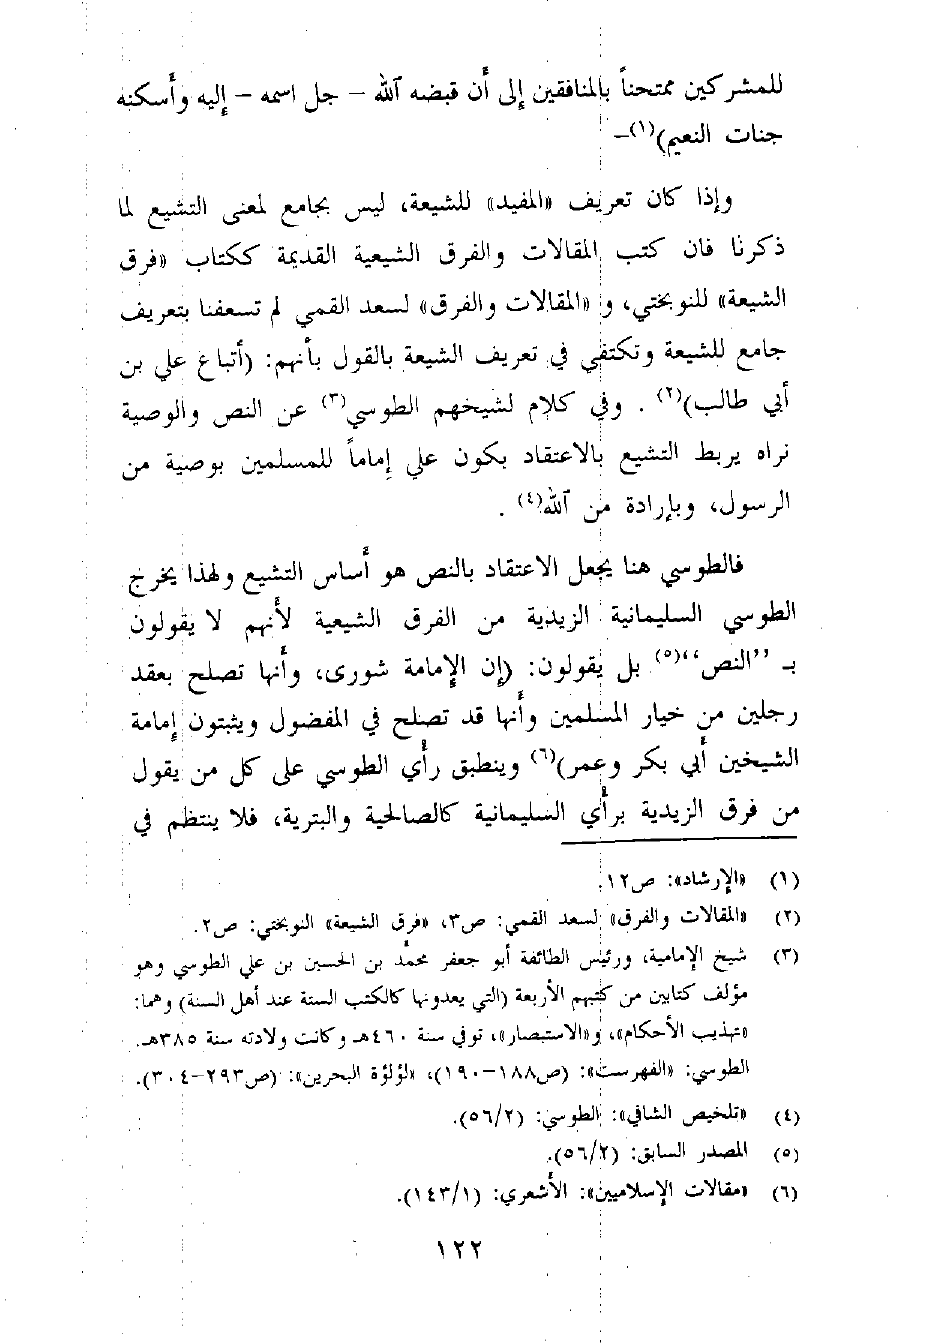 للمشركين ممتحناً بالمنافقين إلى أن قبضه الله – جل اسمه – إليه وأسكنه
جنات النعيم)(١)–
وإذا كان تعريف «المفيد» للشيعة، ليس بجامع لمعنى التشيع لما
ذكرنا فان كتب المقالات والفرق الشيعية القديمة ككتاب «فرق
الشيعة» للنوبختي، و «المقالات والفرق» لسعد القمي لم تسعفنا بتعريف
جامع للشيعة وتكتفي في تعريف الشيعة بالقول بأنهم: (أتباع علي بن
أبي طالب)(٢) . وفي كلام لشيخهم الطوسي(٣) عن النص والوصية
نراه يربط التشيع بالاعتقاد بكون علي إماماً للمسلمين بوصية من
الرسول، وبإرادة من الله(٤) .
فالطوسي هنا يجعل الاعتقاد بالنص هو أساس التشيع ولهذا يخرج
الطوسي السليمانية الزيدية من الفرق الشيعية لأنهم لا يقولون
بـ ”النص“(٥) بل يقولون: (إن الإمامة شورى، وأنها تصلح بعقد
رجلين من خيار المسلمين وأنها قد تصلح في المفضول ويثبتون إمامة
الشيخين أبي بكر وعمر)(٦) وينطبق رأي الطوسي على كل من يقول
من فرق الزيدية برأي السليمانية كالصالحية والبترية، فلا ينتظم في
(١) «الإرشاد»: ص١٢.
(٢) «المقالات والفرق» لسعد القمي: ص٣، «فرق الشيعة» النوبختي: ص٢.
(٣) شيخ الإمامية، ورئيس الطائفة أبو جعفر محمد بن الحسين بن علي الطوسي وهو
مؤلف كتابين من كتبهم الأربعة (التي يعدونها كالكتب الستة عند أهل السنة) وهما:
«تهذيب الأحكام»، و«الاستبصار»، توفي سنة ٤٦٠هـ وكانت ولادته سنة ٣٨٥هـ.
الطوسي: «الفهرست»: (ص١٨٨–١٩٠)، «لؤلؤة البحرين»: (ص٢٩٣–٣٠٤).
(٤) «تلخيص الشافي»: الطوسي: (٥٦/٢).
(٥) المصدر السابق: (٥٦/٢).
(٦) «مقالات الإسلاميين»: الأشعري: (١٤٣/١).
١٢٢